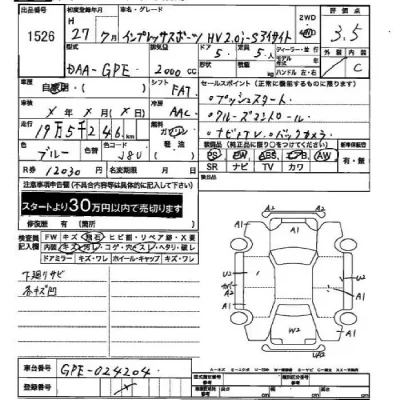 出品番号
1526
初度登録年月
H 27年 7月
車名・グレード
インプレッサスポーツ HV 2.0i-S アイサイト
2WD
4WD
3.5
型式
DAA-GPE
排気量
2000cc
ドア
5
定員
5人
ディーラー・並行
ハンドル 左・右
外装
内装
C
車歴
自家用
シフト
FAT
セールスポイント(正常に機能するものに限る)
車検
年 月
エアコン
AAC
・プッシュスタート
走行
19万5千246km
燃料
ガソリン
軽油
・クルーズコントロール
・ナビ+TV ・バックカメラ
色
ブルー
色替
J8U
装備品(純正品に限り○をつけてください)
新車保証書
有・無
PS PW ABS エアB AW
SR ナビ TV カワ
R券
12030
名変期限
月 日
注意事項申告欄(不具合内容は具体的に記入して下さい)
スタートより30万円以内で売切ります
修復歴
有(箇所)
検査員記入欄
FW キズ 飛石 ヒビ割・リペア跡・X要
内装 キズ・汚レ・コゲ・穴・スレ・ヘタリ・破レ
ドアミラー キズ・ワレ ホイール・キャップ キズ・ワレ
下廻りサビ
各キズ凹
A1
A1
A1
U2
U2
A1
A1
W2
UA2
車台番号
GPE-024204
登録番号